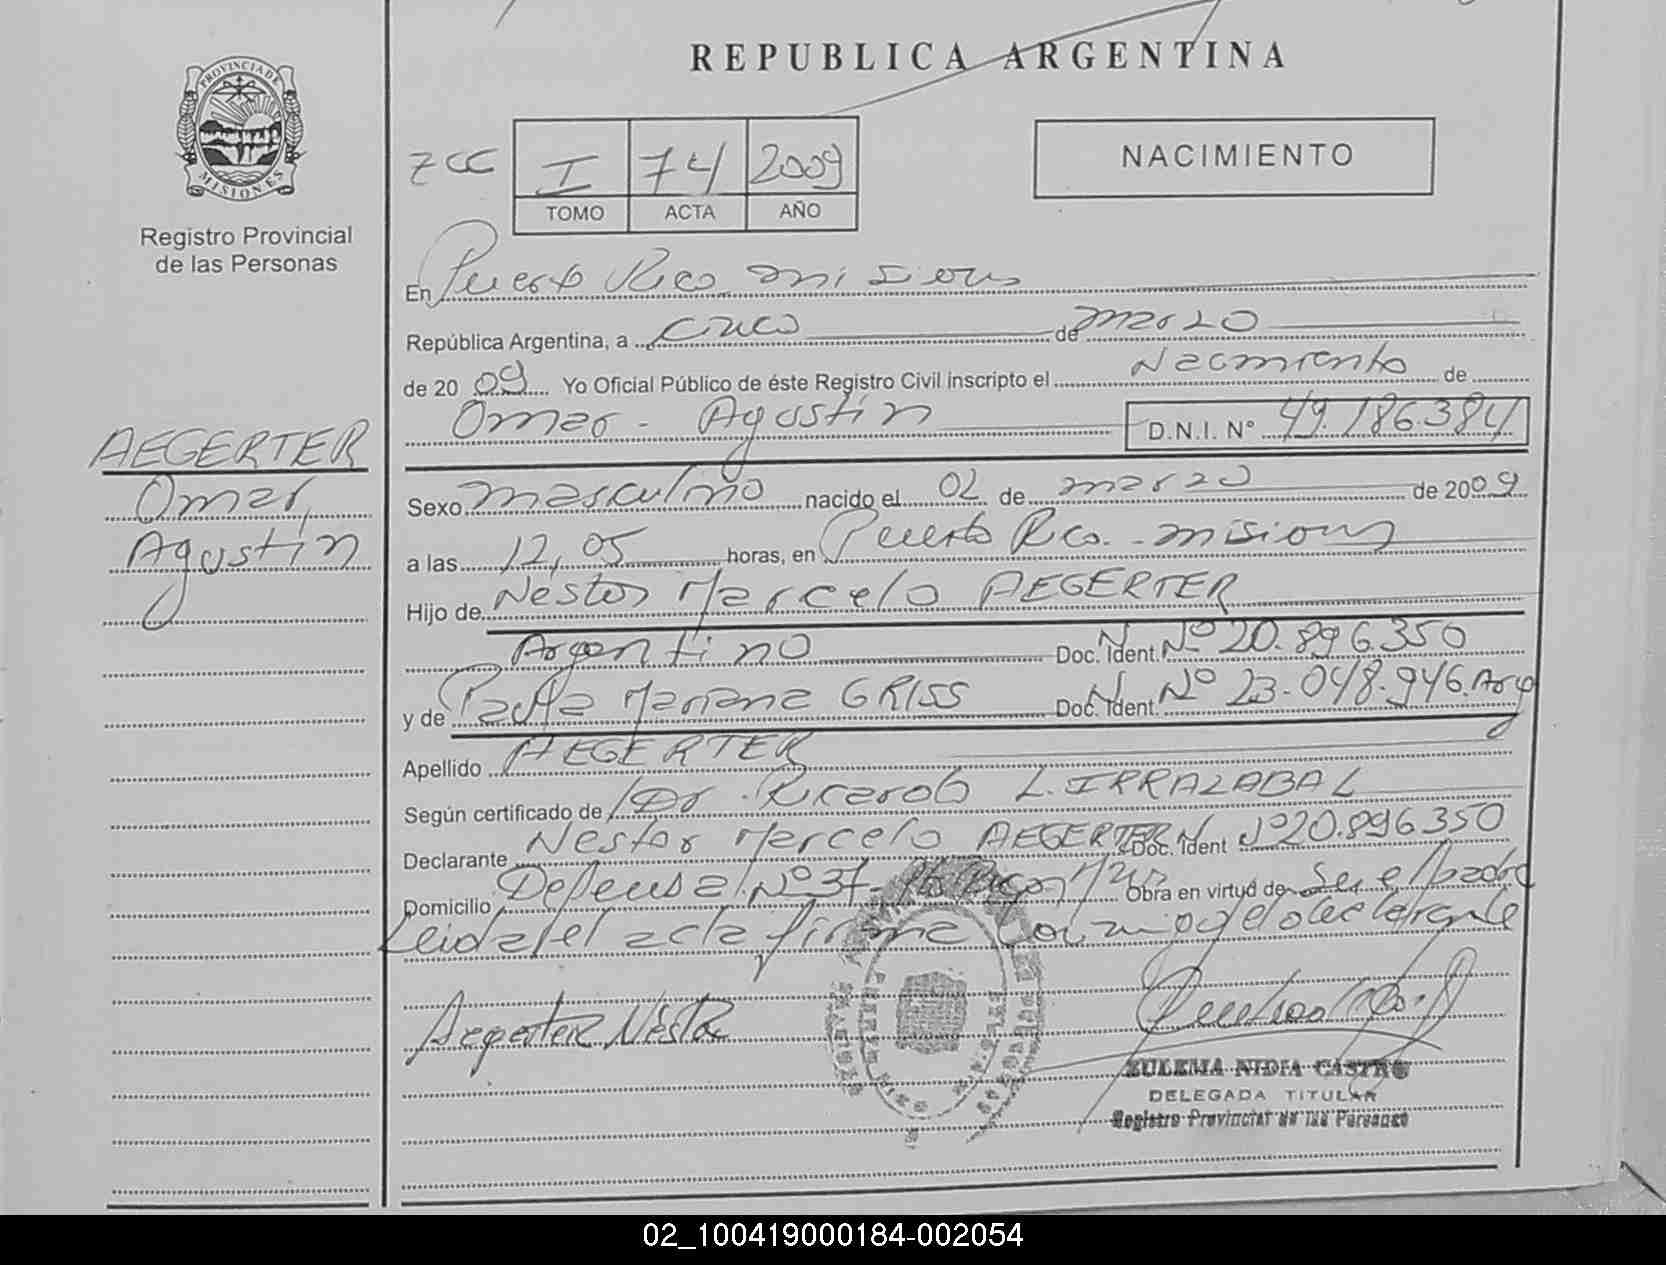 REPUBLICA ARGENTINA
PROVINCIA DE MISIONES
Registro Provincial
de las Personas
ZCC
I 74 2009
TOMO ACTA AÑO
NACIMIENTO
En Puerto Rico misiones
República Argentina, a cinco de marzo
de 2009 Yo Oficial Público de éste Registro Civil inscripto el Nacimiento de
Omar - Agustín D.N.I. N° 49.186.384
AEGERTER
Omar,
Agustín
Sexo masculino nacido el 02 de marzo de 2009
a las 12,05 horas, en Puerto Rico - misiones
Hijo de Nestor Marcelo AEGERTER
Argentino Doc. N. Ident. Nº 20.896.350
y de Paola Mariana GRISS Doc. N. Ident. Nº 23.048.946. Arg
Apellido AEGERTER
Según certificado de Dr. Ricardo L. IRRAZABAL
Declarante Nestor Marcelo AEGERTER Doc. N. Ident Nº 20.896350
Domicilio Defensa Nº 37 - Obra en virtud de Ser el padre
Leida el acta firma conmigo el declarante
Aegerter Néstor
ZULEMA NIDIA CASTRO
DELEGADA TITULAR
Registro Provincial de las Personas
02_100419000184-002054